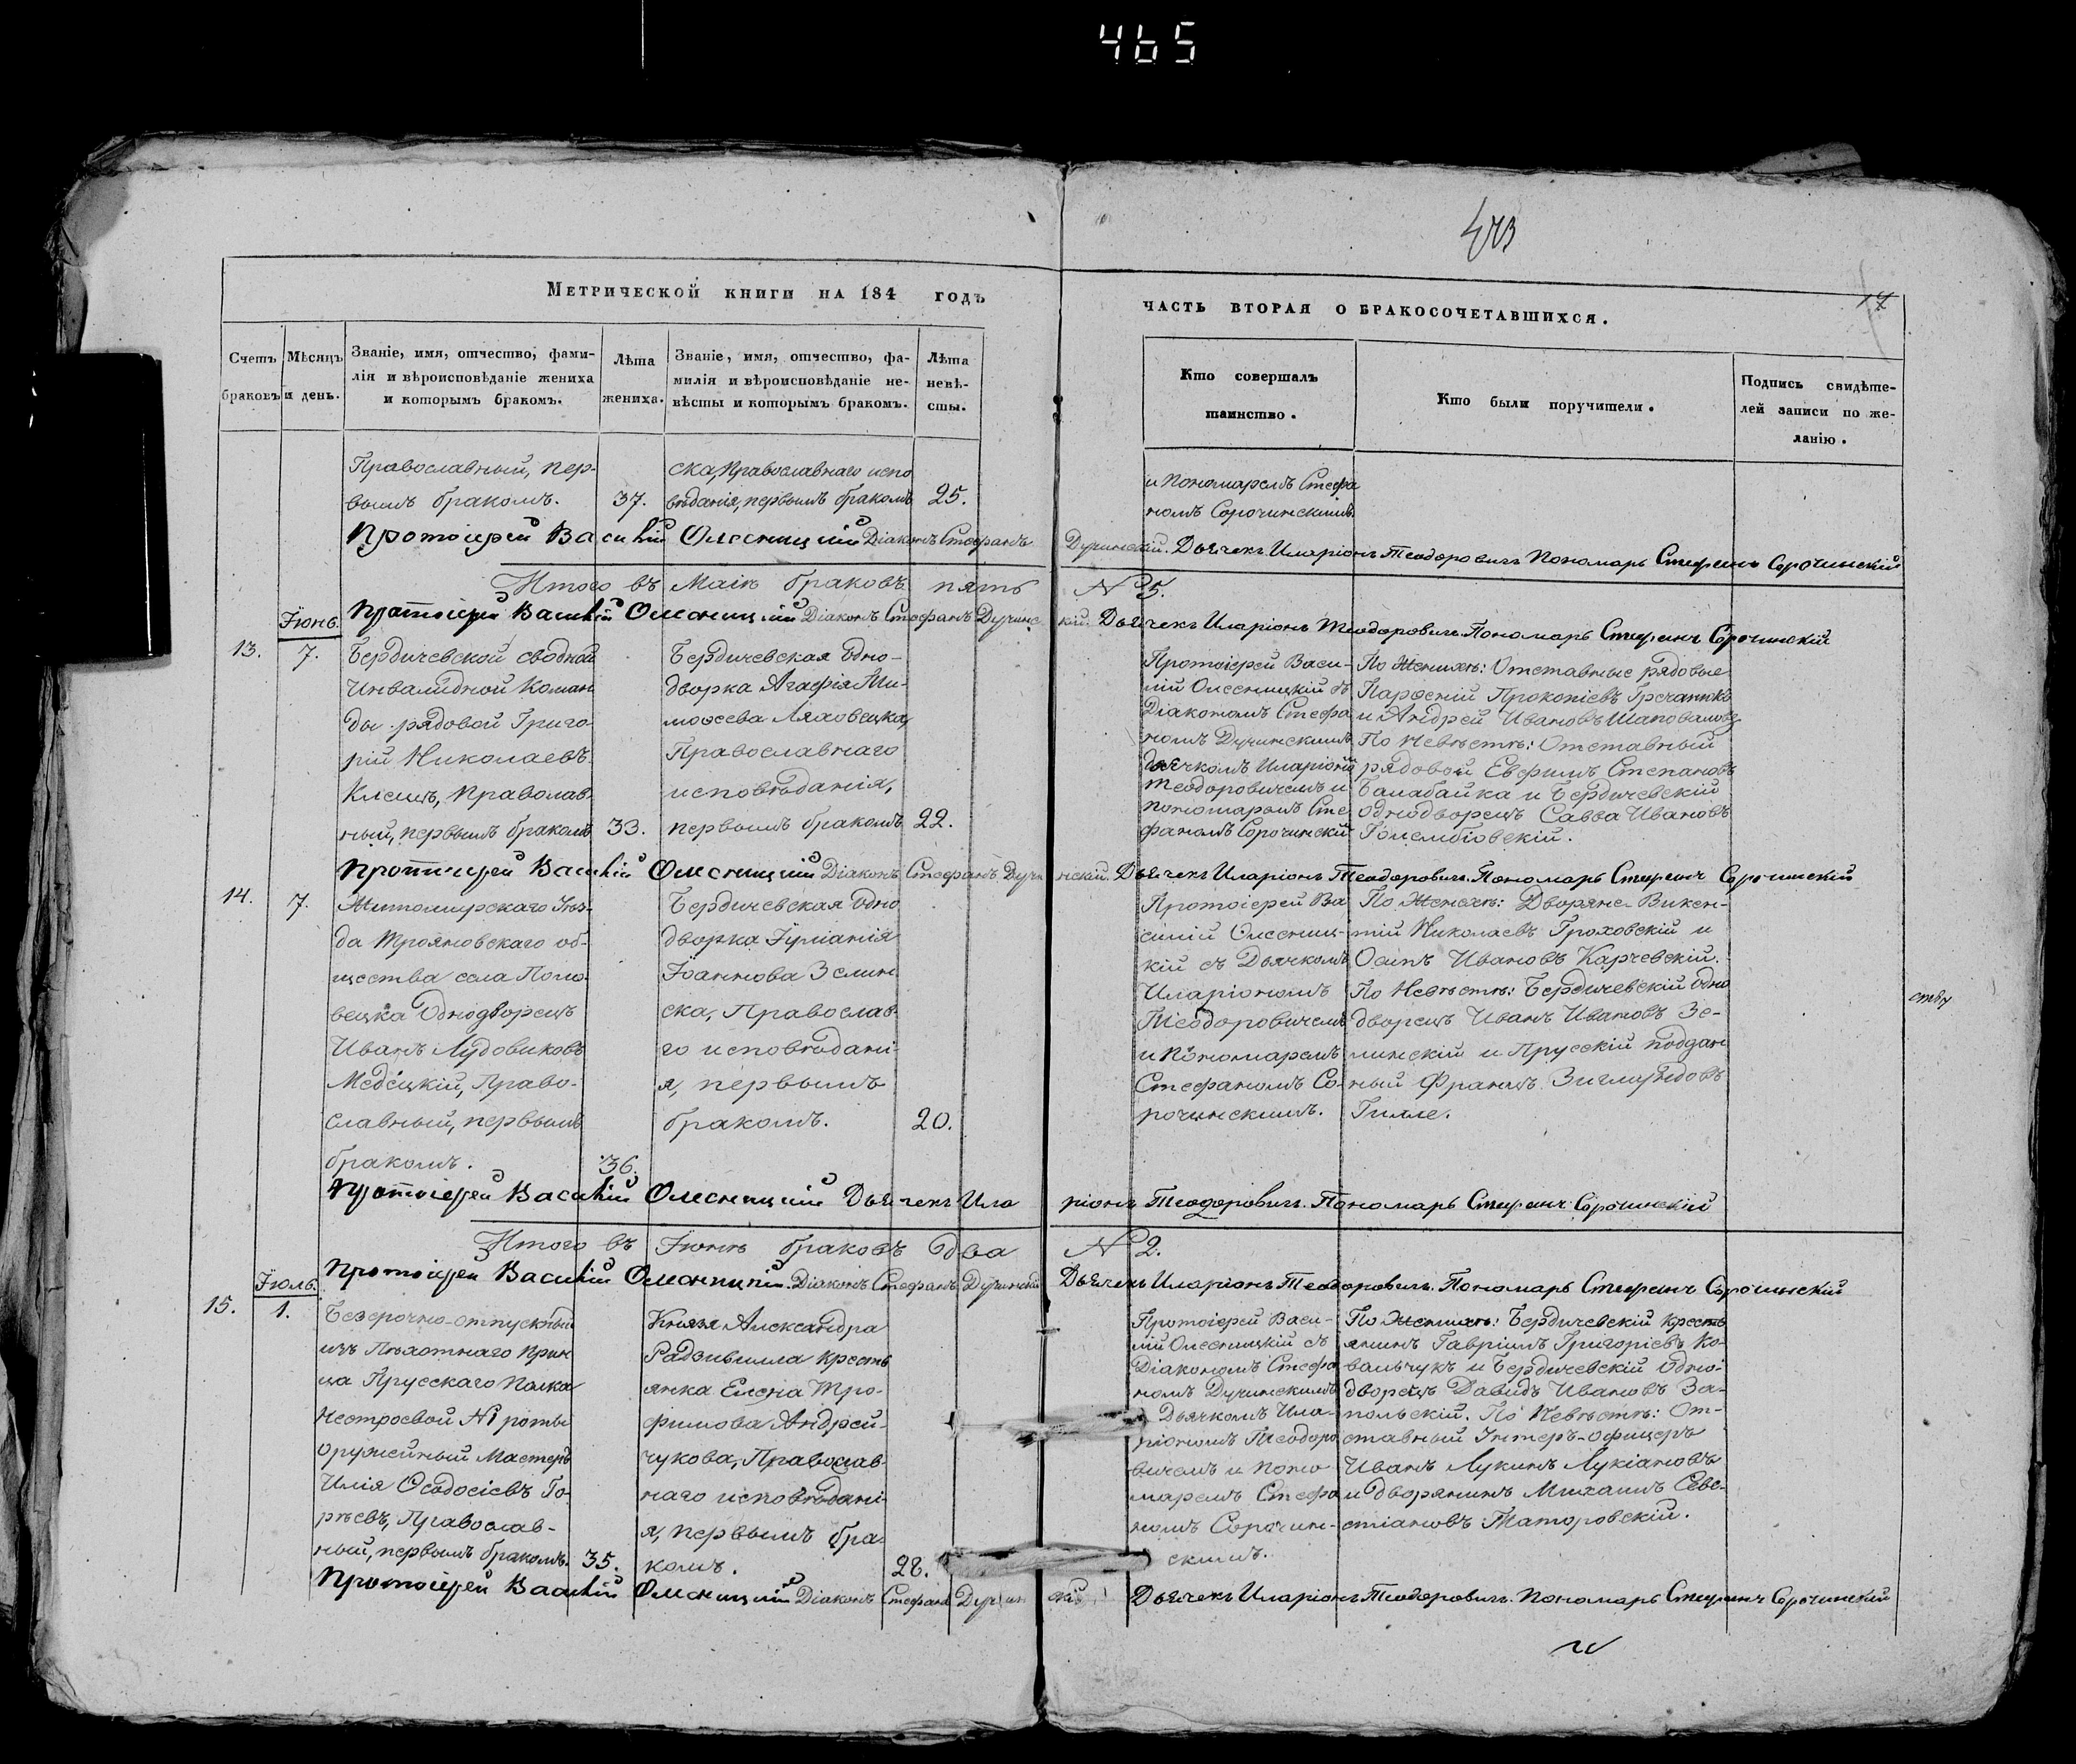 465
473
Метрической книги на 184 годъ
часть вторая о бракосочетавшихся.
17
Счетъ браковъ
Мѣсяцъ и день.
Званіе, имя, отчество, фами-
лія и вѣроисповѣданіе жениха
и которымъ бракомъ.
Лѣта
жениха.
Званіе, имя, отчество, фа-
милія и вѣроисповѣданіе не-
вѣсты и которымъ бракомъ.
Лѣта
невѣ-
сты.
Кто совершалъ
таинство.
Кто были поручители.
Подпись свидѣте-
лей записи по же-
ланію.
Православный, пер-
вымъ бракомъ. 37.
ска, Православнаго испо
вѣданія, первымъ бракомъ 25.
и Пономаремъ Стефа
номъ Сорочинскимъ.
Протоіерей Василій Олесницкій Діаконъ Стефанъ Дучинскій. Дьячекъ Иларіонъ Теодоровичъ Пономарь Стефанъ Сорочинскій
Итого въ Маіѣ браковъ пять № 5.
Протоіерей Василій Олесницкій Діаконъ Стефанъ Дучинскій. Дьячекъ Иларіонъ Теодоровичъ. Пономарь Стефанъ Сорочинскій
Іюнь.
13. 7.
Бердичевской сводной
Инвалидной Коман
ды рядовой Григо
рій Николаевъ
Клещъ, Православ
ный, первымъ бракомъ 33.
Бердичевская Одно-
дворка Агафія Ти-
мофеева Ляховецка,
Православнаго
исповѣданія,
первымъ бракомъ 22.
Протоіерей Васи-
лій Олесницкій съ
Діакономъ Стефа
номъ Дучинскимъ
дьячкомъ Иларіоно
Теодоровичемъ и
пономаромъ Сте
фаномъ Сорочинскій
По Женихѣ: Отставные рядовые
Парфеній Прокопіевъ Гречанико
и Андрей Ивановъ Шаповаловъ
По Невѣстѣ: Отставный
рядовой Евфимъ Степановъ
Балабайка и Бердичевскій
однодворецъ Савва Ивановъ
Голембіовскій.
Протоіерей Василій Олесницкій Діаконъ Стефанъ Дучинскій. Дьячекъ Иларіонъ Теодоровичъ. Пономарь Стефанъ Сорочинскій
14. 7.
Житомирскаго Уез-
да Трояновскаго об-
щества села Поло
вецка Однодворецъ
Иванъ Лудовиковъ
Медецкій, Право-
славный, первымъ
бракомъ. 36.
Бердичевская Одно
дворка Іуліанія
Іоаннова Зелин
ска, Православ
го исповѣдані-
я, первымъ
бракомъ. 20.
Протоіерей Ва
силій Олесниц-
кій съ Дьячкомъ
Иларіономъ
Теодоровичемъ
и Пономаремъ
Стефаномъ Со-
рочинскимъ.
По Женихѣ: Дворяне Викен-
тій Николаевъ Гроховскій и
Осипъ Ивановъ Карчевскій.
По Невѣстѣ: Бердичевскій Одно
дворецъ Иванъ Ивановъ Зе-
линскій и Прусскій поддан
ный Францъ Зигмундовъ
Гилле.
Протоіерей Василій Олесницкій Дьячекъ Иларіонъ Теодоровичъ. Пономарь Стефанъ Сорочинскій
Итого въ Іюнѣ браковъ два № 2.
Протоіерей Василій Олесницкій. Діаконъ Стефанъ Дучинскій Дьячекъ Иларіонъ Теодоровичъ. Пономарь Стефанъ Сорочинскій
Іюль.
15. 1.
Безсрочно-отпускный
изъ Пѣхотнаго Прин
ца Прусскаго Полка
Нестроевой №1 роты
оружейный Мастеръ
Илія Феодосіевъ Го-
рѣевъ, Православ-
ный, первымъ бракомъ. 35.
Князя Александра
Радзивилла кресть
янка Елена Тро-
фимова Андрей-
чукова, Православ
наго исповѣдані-
я, первымъ бра
комъ. 28.
Протоіерей Васи-
лій Олесницкій съ
Діакономъ Стефа
номъ Дучинскимъ
Дьячкомъ Ила-
ріономъ Теодоро
вичемъ и поно
маремъ Стефа
номъ Сорочин-
скимъ.
По Женихѣ: Бердичевскій кресть
янинъ Гавріилъ Григоріевъ Ко-
вальчукъ и Бердичевскій Одно-
дворецъ Давидъ Ивановъ За-
польскій. По Невѣстѣ: От-
ставный Унтеръ-офицеръ
Иванъ Лукинъ Лукіановъ
и дворянинъ Михаилъ Севе-
стіановъ Таторовскій.
Протоіерей Василій Олесницкій Діаконъ Стефанъ Дучинскій Дьячекъ Иларіонъ Теодоровичъ. Пономарь Стефанъ Сорочинскій